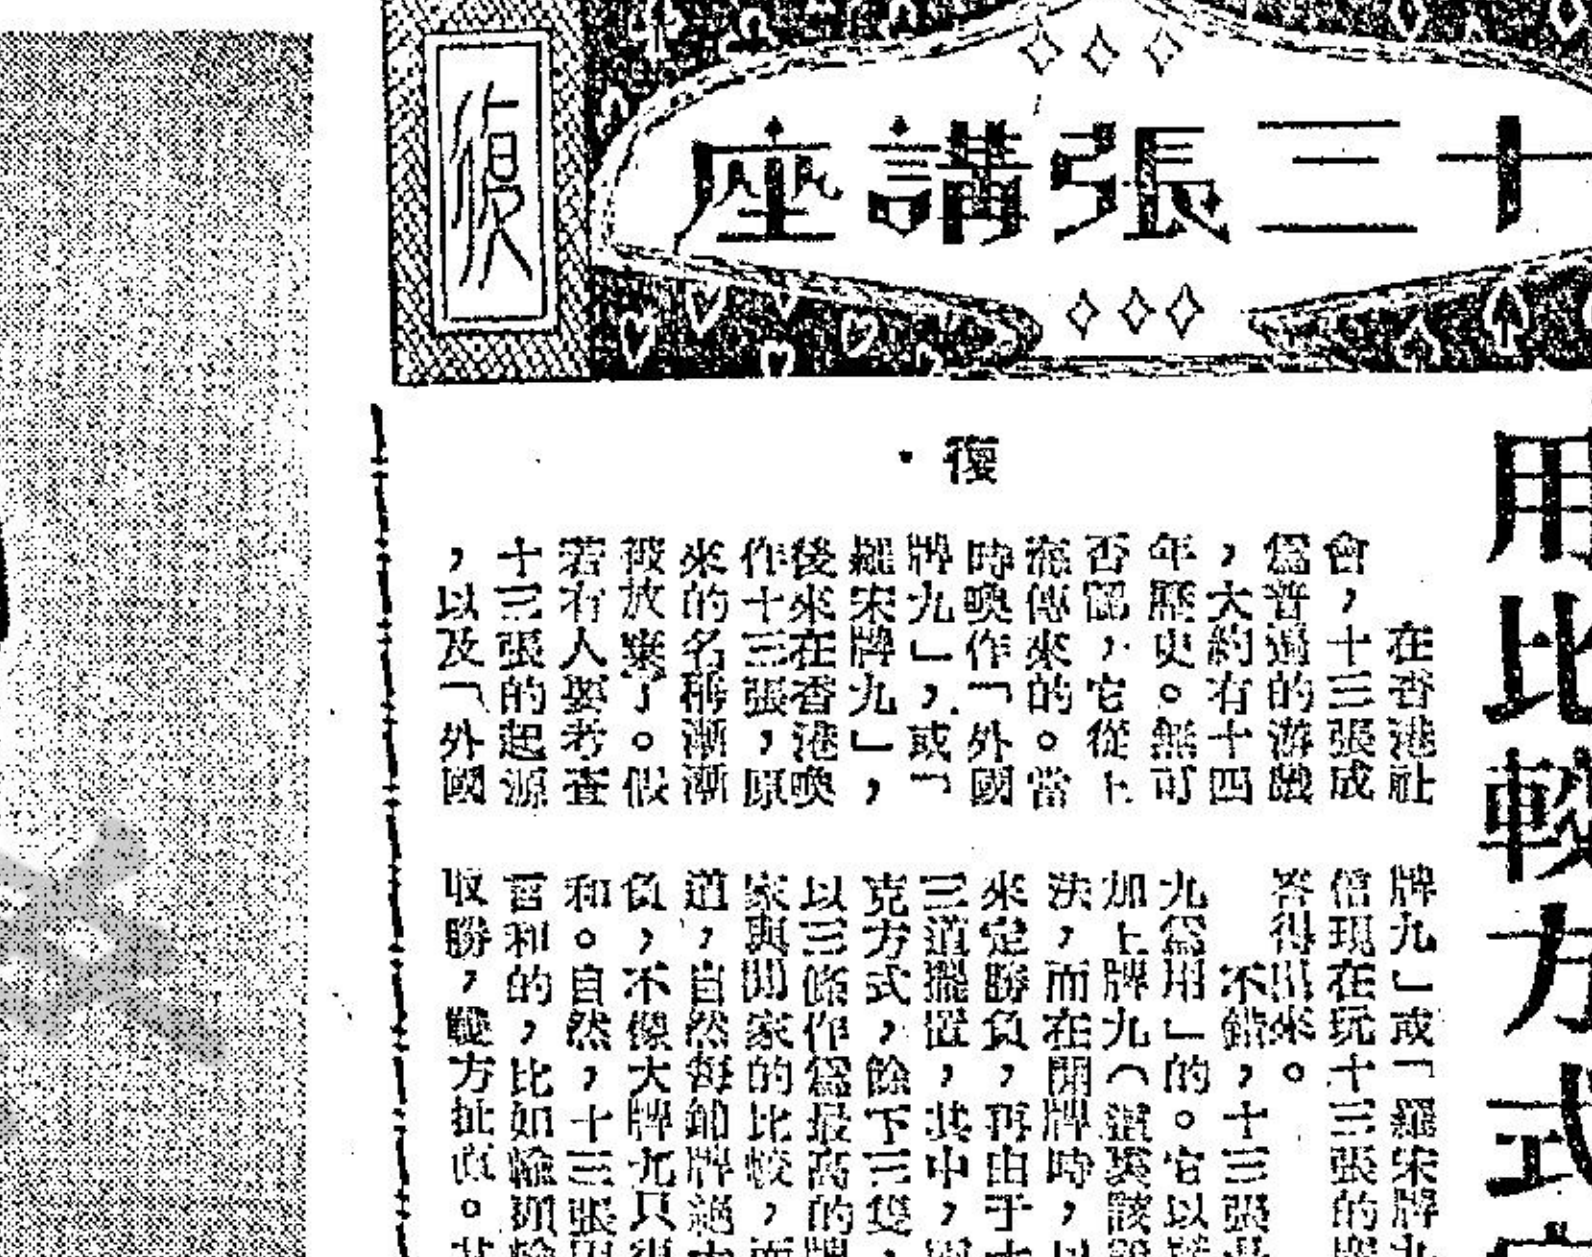 十三張講座
復
用比較方式
復・
在香港社
會，十三張成
爲普遍的游戲
，大約有十四
年歷史。無可
否認，它從上
海傳來的。當
時喚作「外國
牌九」，或「
羅宋牌九」，
後來在香港喚
作十三張，原
來的名稱漸漸
被放棄了。假
若有人要考查
十三張的起源
，以及「外國
牌九」或「羅宋牌九
信現在玩十三張的
答得出來。
不錯，十三張
九爲用」的。它以
加上牌九（
法，而在開牌時，以
來定勝負，再由于
三道擺置，其中，
克方式，餘下三隻，
以三條作爲最高的牌
家與閒家的比較，而
道，自然每舖牌
負，不像大牌九只
和。自然，十三張
言和的，比如輸頭
收勝，雙方扯直。